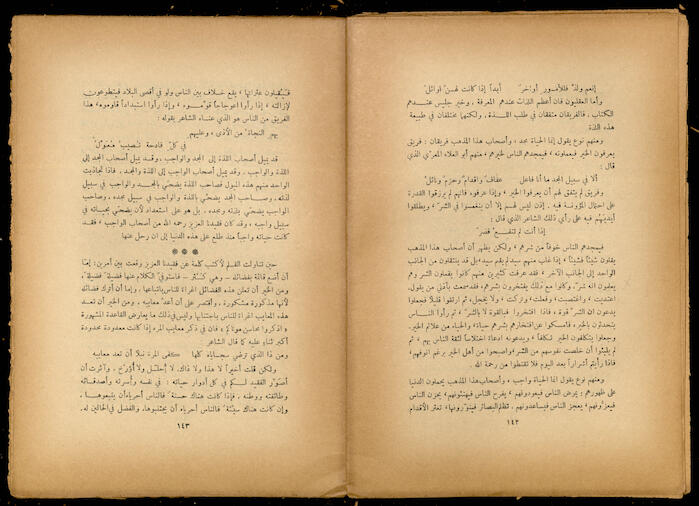 إنعم ولذ فللأمور أواخر أبداً إذا كانت لهن أوائل
وأما العقليون فان أعظم اللذات عندهم المعرفة ، وخير جليس عندهم
الكتاب ، فالفريقان متفقان في طلب اللذة ، ولكنهما مختلفان في طبيعة
هذه اللذة
ومنهم نوع يقول إنما الحياة مجد ، وأصحاب هذا المذهب فريقان : فريق
يعرفون الخير فيعملونه ، فيمجدهم الناس لخيرهم ، منهم أبو العلاء المعري الذي
قال :
ألا في سبيل المجد ما أنا فاعل عفاف وإقدام وحزم ونائل
وفريق لم يتفق لهم أن يعرفوا الخير ، وإذا عرفوه فانهم لم يرزقوا القدرة
على احتمال المؤونة فيه . إذن ليس لهم إلا أن ينغمسوا في الشر ، ويطلقوا
أيديهم فيه على رأي ذلك الشاعر الذي قال :
إذا أنت لم تنفع فضر
فيمجدهم الناس خوفاً من شرهم ، ولكن يظهر أن أصحاب هذا المذهب
يقلون شيئاً فشيئاً ، إذا غاب منهم سيد لم يقم سيد ، بل قد ينتقلون من الجانب
الواحد إلى الجانب الآخر ، فقد عرفت كثيرين منهم كانوا يفعلون الشر وهم
يعلمون انه شر ، وكانوا مع ذلك يفتخرون بشرهم ،
اعتديت ، واغتصبت ، وفعلت ، وتركت ، ولا يخجل ، ثم ارتقوا قليلاً فجعلوا
يدعون ان الشر قوة ، فاذا افتخروا فبالقوة لا بالشر ، ثم رأوا الناس
يتحدثون بالخير ، فامسكوا عن افتخارهم بشرهم حياء ، والحياء من علائم الخير .
وجعلوا يتكلفون الخير تكلفاً ، ويدعونه ادعاء اختلاساً لثقة الناس بهم ، ثم
لم يلبثوا أن خلصت نفوسهم من الشر ، واصبحوا من أهل الخير برغم انوفهم ،
فاذا رأيتم أشراراً بعد اليوم فلا تقنطوا من رحمة الله .
ومنهم نوع يقول إنما الحياة واجب ، وأصحاب هذا المذهب يحملون الدنيا
على ظهورهم ؛ يمرض الناس فيعودونهم ، يفرح الناس فيهنئونهم ، يحزن الناس
فيعزونهم ، يعجز الناس فيساعدونهم . تظلم البصائر فينورونها ، تعثر الأقدام
١٤٢
فيقيلون عثراتها ، يقع خلاف بين الناس ولو في أقصى البلاد فيتطوعون
لإزالته ، إذا رأوا اعوجاجاً قوّموه ، وإذا رأوا استبداداً قاوموه ، هذا
الفريق من الناس هو الذي عناه الشاعر بقوله :
بهم النجاة من الأذى ، وعليهم
في كل فادحة تصيب معول
قد يميل أصحاب اللذة إلى المجد والواجب ، وقد يميل أصحاب المجد إلى
اللذة والواجب ، وقد يميل أصحاب الواجب إلى اللذة والمجد . فاذا تجاذبت
الواحد منهم هذه الميول فصاحب اللذة يضحي بالمجد والواجب في سبيل
لذته ، وصاحب المجد يضحي باللذة والواجب في سبيل مجده ، وصاحب
الواجب يضحي بلذته ومجده . بل هو على استعداد لأن يضحي بحياته في
سبيل واجبه ، وقد كان فقيدنا العزيز رحمه الله من أصحاب الواجب ، فقد
كانت حياته واجباً منذ طلع على هذه الدنيا إلى ان رحل عنها
* * *
حين تناولت القلم لأكتب كلمة عن فقيدنا العزيز وقعت بين أمرين : إما
أن أضع قائمة بفضائله – وهي كثر – فاستوفي الكلام عنها فضيلة فضيلة ،
ومن الخير أن تعلن هذه الفضائل اغراء للناس باتباعها ، وإما أن أترك فضائله
لأنها مذكورة مشكورة ، وأقتصر على أن أعد معايبه . ومن الخير أن تعد
هذه المعايب اغراء للناس باجتنابها وليس في ذلك ما يعارض القاعدة المشهورة
« اذكروا محاسن موتاكم » فان في ذكر معايب المرء إذا كانت معدودة محدودة
أكبر ثناء عليه كما قال الشاعر
ومن ذا الذي ترضي سجاياه كلها كفى المرء نبلاً أن تعد معايبه
ولكن قلت أخيراً لا هذا ولا ذاك . لا أحلل ولا أؤرخ . وآثرت أن
أصور الفقيد لكم في كل أدوار حياته : في نفسه وأسرته وأصدقائه
وطائفته ووطنه . فإذا كانت هناك حسنة فالناس أحرياء أن يتبعوها ،
وإن كانت هناك سيئة فالناس أحرياء أن يجتنبوها ، والفضل في الحالين له .
١٤٣